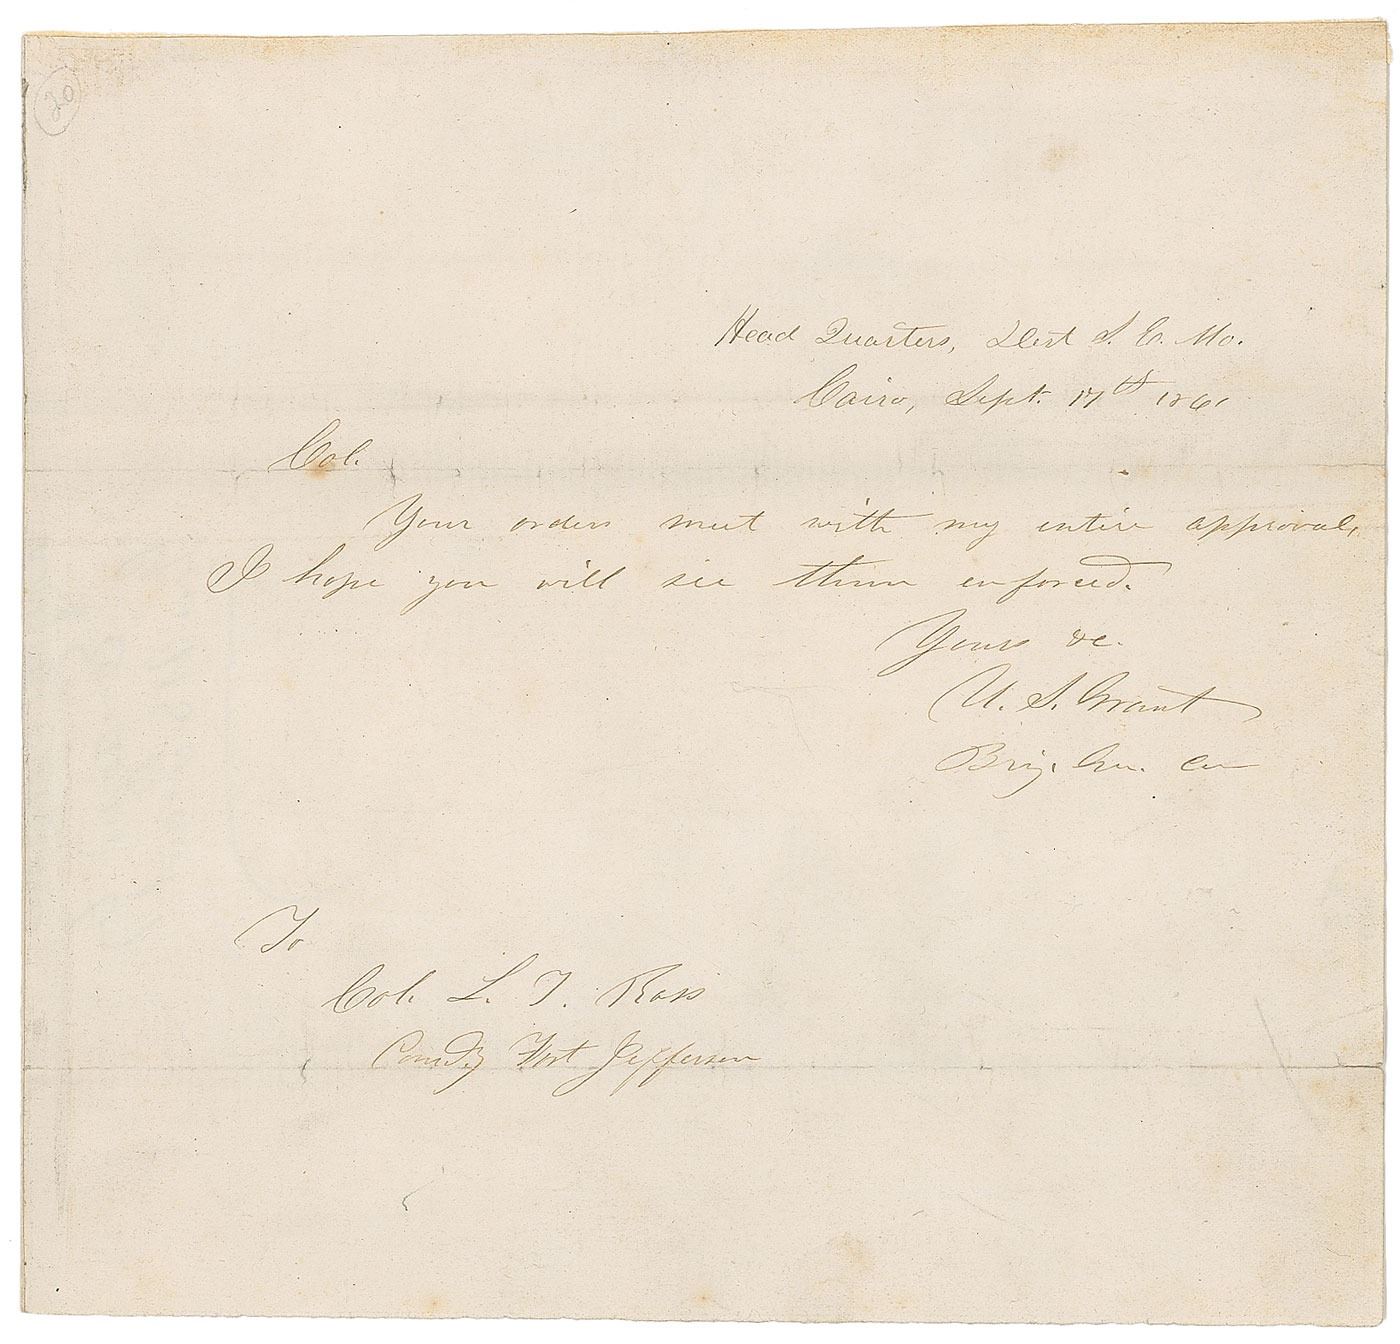 20
Head Quarters, Dist S. E. Mo.
Cairo, Sept. 17th 1861
Col.
Your orders meet with my entire approval,
I hope you will see them enforced.
Yours &c.
U. S. Grant
Brig. Gen. Com
To
Col. L. F. Ross
Comd.g Fort Jefferson